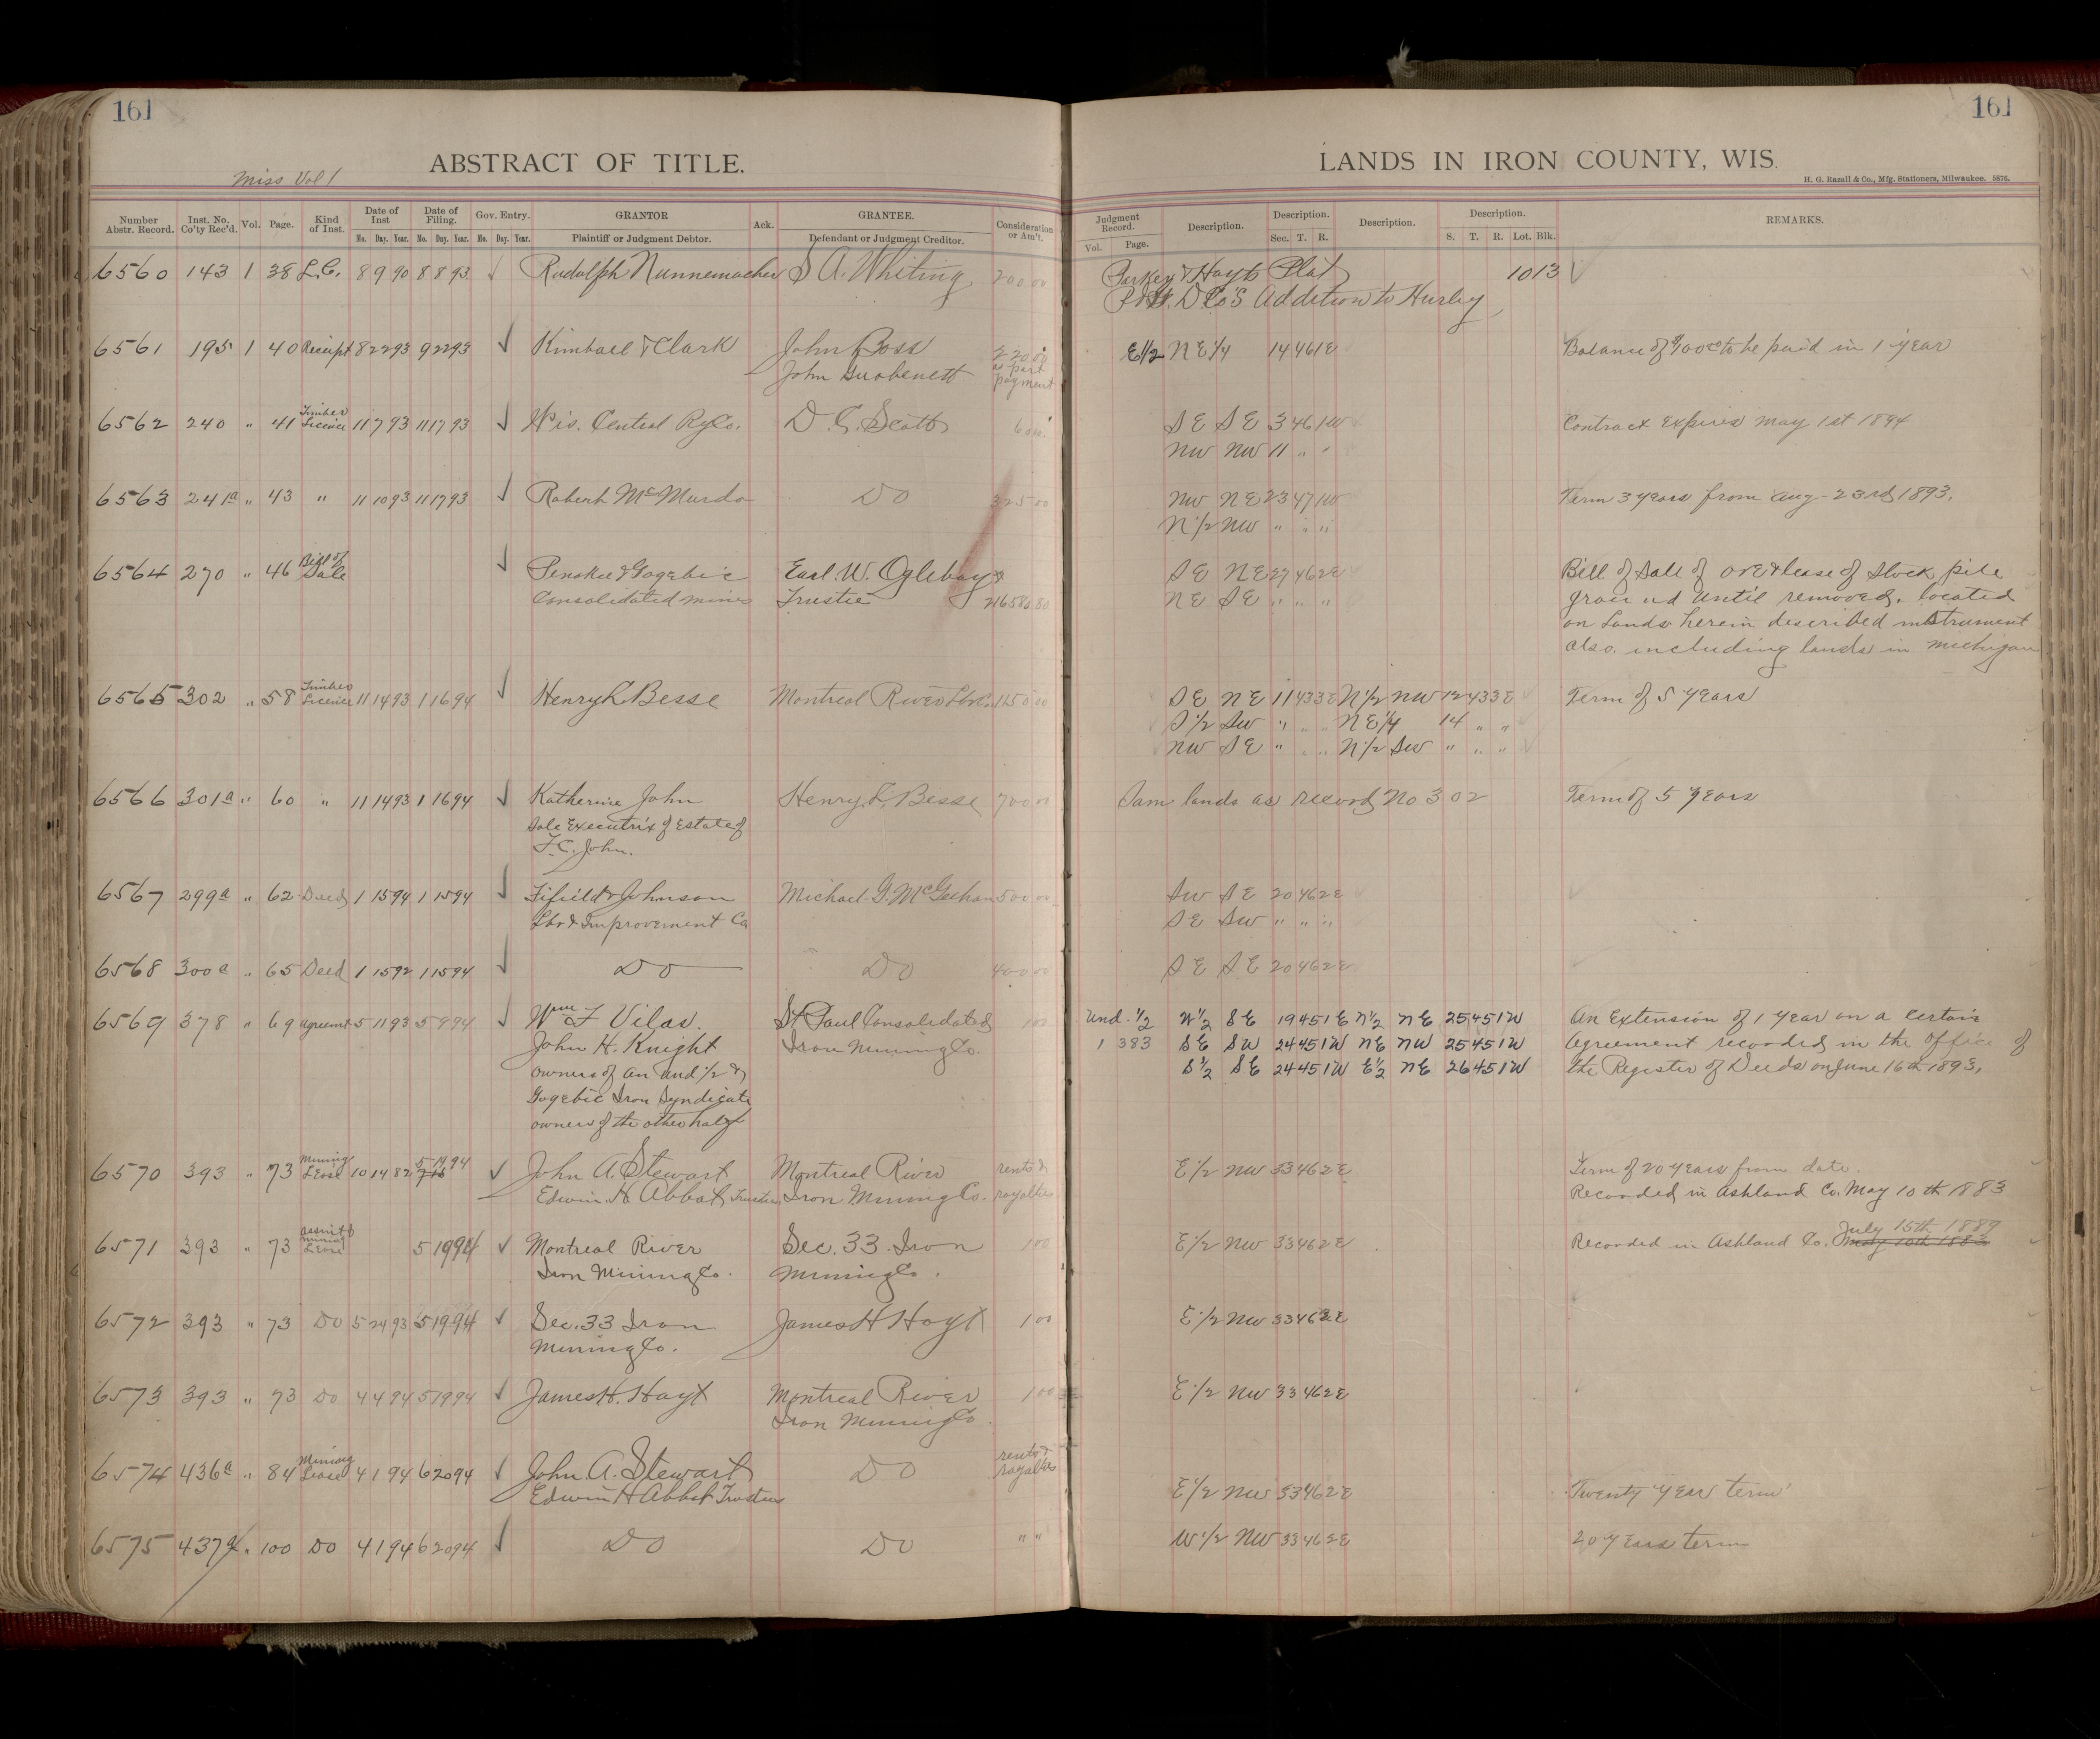 161
161
ABSTRACT OF TITLE.
LANDS IN IRON COUNTY, WIS.
Miss Vol 1
H. G. Razall & Co., Mfg. Stationers, Milwaukee. 5876.
Number Abstr. Record. Inst. No. Co'ty Rec'd. Vol. Page. Kind of Inst. Date of Inst Mo. Day. Year. Date of Filing. Mo. Day. Year. Gov. Entry. Mo. Day. Year. GRANTOR Plaintiff or Judgment Debtor. Ack. GRANTEE. Defendant or Judgment Creditor. Consideration or Am't. Judgment Record. Vol. Page. Description. Description. Sec. T. R. Description. Description. S. T. R. Lot. Blk. REMARKS.
6560 143 1 38 L.C. 8 9 90 8 8 93 Rudolph Nunnemacher S A. Whiting 200 00 Parkey & Hoyts Plat 10 13
Addition to Hurley
6561 195 1 40 Receipt 8 22 93 9 22 93 Kimball & Clark John Boss 220 00 E1/2 NE1/4 14 46 1E Balance of to be paid in 1 year
John as part payment
6562 240 " 41 Timber Licence 11 7 93 11 17 93 Wis. Central Ry Co. D. C. Scott SE SE 3 46 1W Contract Expires May 1st 1894
NW NW 11 " "
6563 241a " 43 " 11 10 93 11 17 93 Robert McMurdo DO 325 00 NW NE 23 47 1W Term 3 years from Aug- 23rd 1893.
N1/2 NW " " "
6564 270 " 46 Bill of Sale Penokee & Gogebic Earl. W. Oglebay SE NE 27 46 2E Bill of Sale of ore & lease of Stock pile
Consolidated Mines Trustee NE SE " " " ground until removed. located
on Lands herein described instrument
also. including lands in Michigan
6565 302 " 58 Timber Licence 11 14 93 1 16 94 Henry L Besse Montreal River Lbr Co. 1150 00 SE NE 11 43 3E N1/2 NW 12 43 3E Term of 5 years
S1/2 SW " " " NE1/4 14 " "
NW SE " " " N1/2 SW " " "
6566 301a " 60 " 11 14 93 1 16 94 Katherine John Henry L Besse 700 00 Sam lands as record No 302 Term of 5 years
Sole Executrix of Estate of
F. C. John.
6567 299a " 62 Deed 1 15 94 1 15 94 Fifield & Johnson Michael G. McGeehan 500 00 SW SE 20 46 2E
Lbr & Improvement Co SE SW " " "
6568 300a " 65 Deed 1 15 92 1 15 94 DO DO 400 00 SE SE 20 46 2E
6569 378 " 69 Agreemt 5 11 93 5 9 94 Wm F Vilas. St Paul Consolidated 1 00 Und. 1/2 W1/2 SE 19 45 1E N1/2 NE 25 45 1W An Extension of 1 year on a certain
John H. Knight Iron Mining Co. 1 383 SE SW 24 45 1W NE NW 25 45 1W Agreement recorded in the office of
owners of an und 1/2 & S1/2 SE 24 45 1W E1/2 NE 26 45 1W the Register of Deeds on June 16th 1893.
Gogebic Iron Syndicate
owners of the other half
6570 393 " 73 Mining Lease 10 14 82 5 19 94 John A. Stewart Montreal River rents & E1/2 NW 33 46 2E Term of 20 years from date.
Edwin H. Abbot Trustees Iron Mining Co. royalties Recorded in Ashland Co. May 10th 1883
6571 393 " 73 Assmt of Mining Lease 5 19 94 Montreal River Sec. 33 Iron 1 00 E1/2 NW 33 46 2E Recorded in Ashland Co. May 10th 1883 July 15th 1889
Iron Mining Co. Mining Co.
6572 393 " 73 DO 5 24 93 5 19 94 Sec. 33 Iron James H Hoyt 1 00 E1/2 NW 33 46 2E
Mining Co.
6573 393 " 73 DO 4 4 94 5 19 94 James H. Hoyt Montreal River 1 00 E1/2 NW 33 46 2E
Iron Mining Co
6574 436a " 84 Mining Lease 4 1 94 6 20 94 John A. Stewart DO rents & royalties
Edwin H Abbot Trustees E1/2 NW 33 46 2E Twenty year term
6575 437a " 100 DO 4 1 94 6 20 94 DO DO " " W1/2 NW 33 46 2E 20 years term